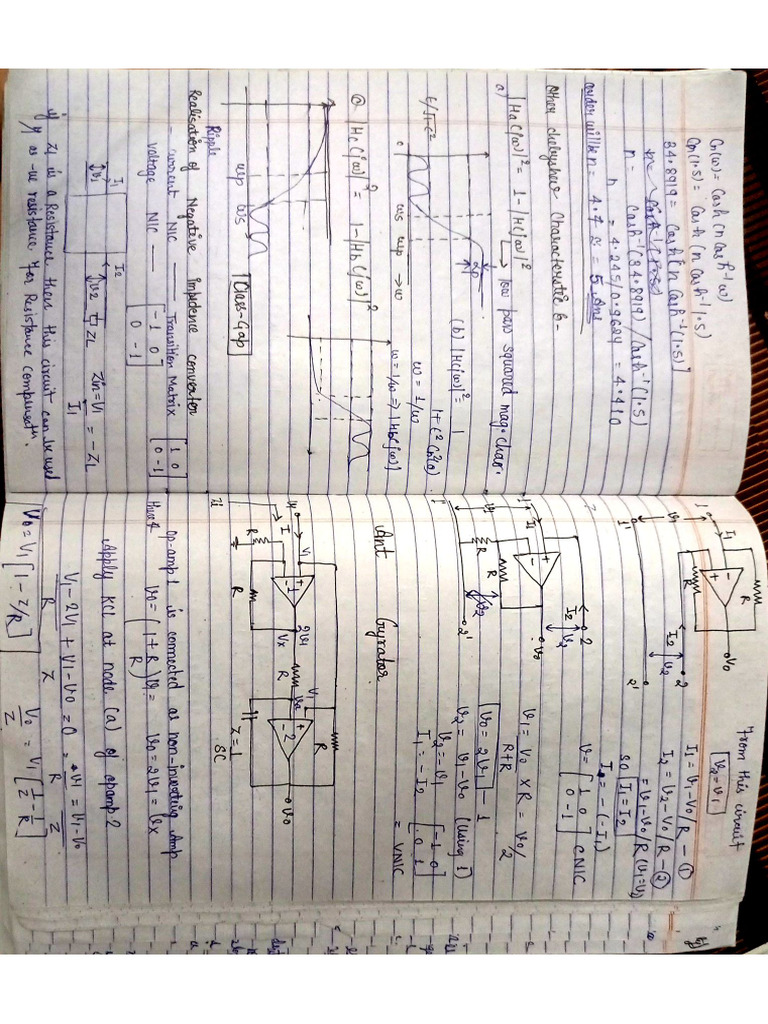 Cn(ω) = Cosh (n Cosh⁻¹ ω)
Cn(1.5) = Cosh (n Cosh⁻¹ 1.5)
34.8919 = Cosh [n Cosh⁻¹ (1.5)]
n = Cosh⁻¹(34.8919) / Cosh⁻¹(1.5)
n = 4.245/0.9624 = 4.410
order will be n = 4.4 ≈ 5 Ans
Other chebyshev Characteristic 6-
a) |Ha(jω)|² = 1 - |Hc(jω)|²
low pass squared mag. char.
(b) |Hc(jω)|² = 1
1 + ε² Cn²(ω)
ω = 1/ω
ω = 1/ω => |Hb(jω)|
0 ωs ωp → ω
© |Hc(jω)|² = 1 - |Hb(jω)|²
ωp ωs
Ripple
Class-Gap
Realisation of Negative impedence converter
- current NIC — Transition Matrix [1 0
0 -1]
voltage NIC — [-1 0
0 -1]
I1 I2
V1 V2 ZL Zin = V1 = - ZL
I1
if Z1 is a Resistance then this circuit can be used
as -ve resistance for Resistance compensatn.
From this circuit
V2 = V1
I1 = V1 - V0/R — ①
I2 = V2 - V0/R — ②
= V1 - V0/R (V1 = V2)
so I1 = I2
I2 = - (-I1)
V = [1 0
0 -1] CNIC
1 I1 V1 1' R R V0 I2 2 V2 2'
V1 = V0 × R = V0/2
R+R
V0 = 2V1 - 1
V2 = V1 - V0 (Using 1)
V2 = - V1
I1 = - I2 [-1 0
0 1] = VNIC
Ant Gyrator
V1 I R R V1 1 2V1 Vx R Va 2 R V0
Z = 1
SC
Zi
Op-amp 1 is connected as non-inverting Amp
thus V0 = (1 + R/R) V1 = V0 = 2V1 = Vx
Apply KCL at node (a) of opamp 2
V1 - 2V1 + V1 - V0 = 0 = V1 = V1 - V0
R Z R Z
V0 = V1 [1 - Z/R] V0 = V1 [1 - 1]
Z Z R